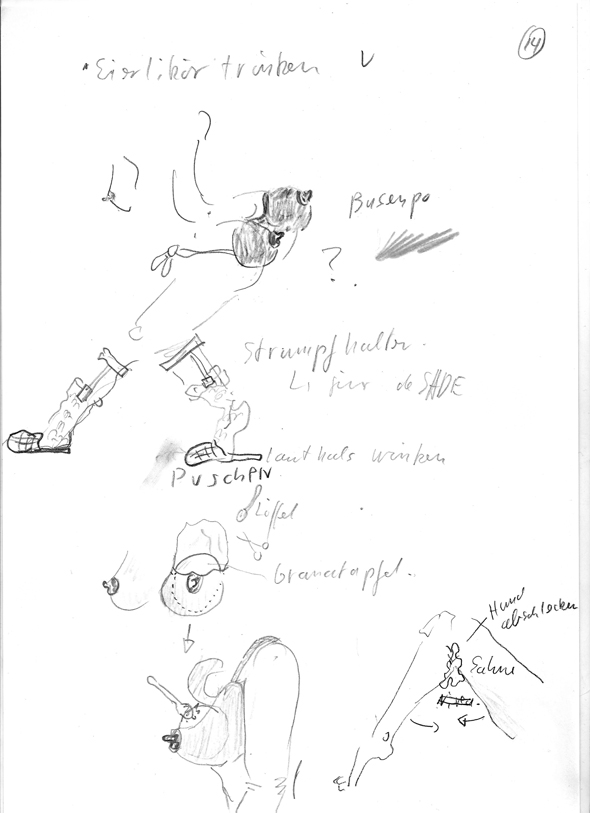 14
Eierlikör trinken
Busenpo
?
?
Strumpfhalter.
de SADE
lauthals winken
PuschEN
Löffel
Granatapfel.
Hund
abschlecken
Sahne